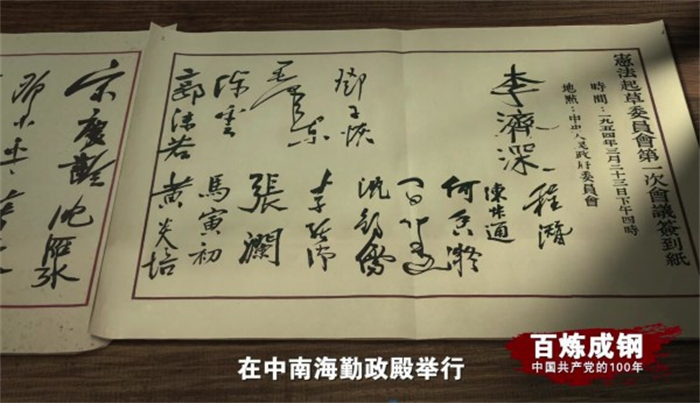 憲法起草委員會第一次會議簽到紙
時間：一九五四年三月二十三日下午四時
地點：中央人民政府委員會
程潛
李濟深
陳叔通
何香凝
鄧子恢
沈鈞儒
毛澤東
張瀾
陈雲
馬寅初
郭沫若
黄炎培
宋慶齡
沈雁冰
在中南海勤政殿举行
百炼成钢
中国共产党的100年